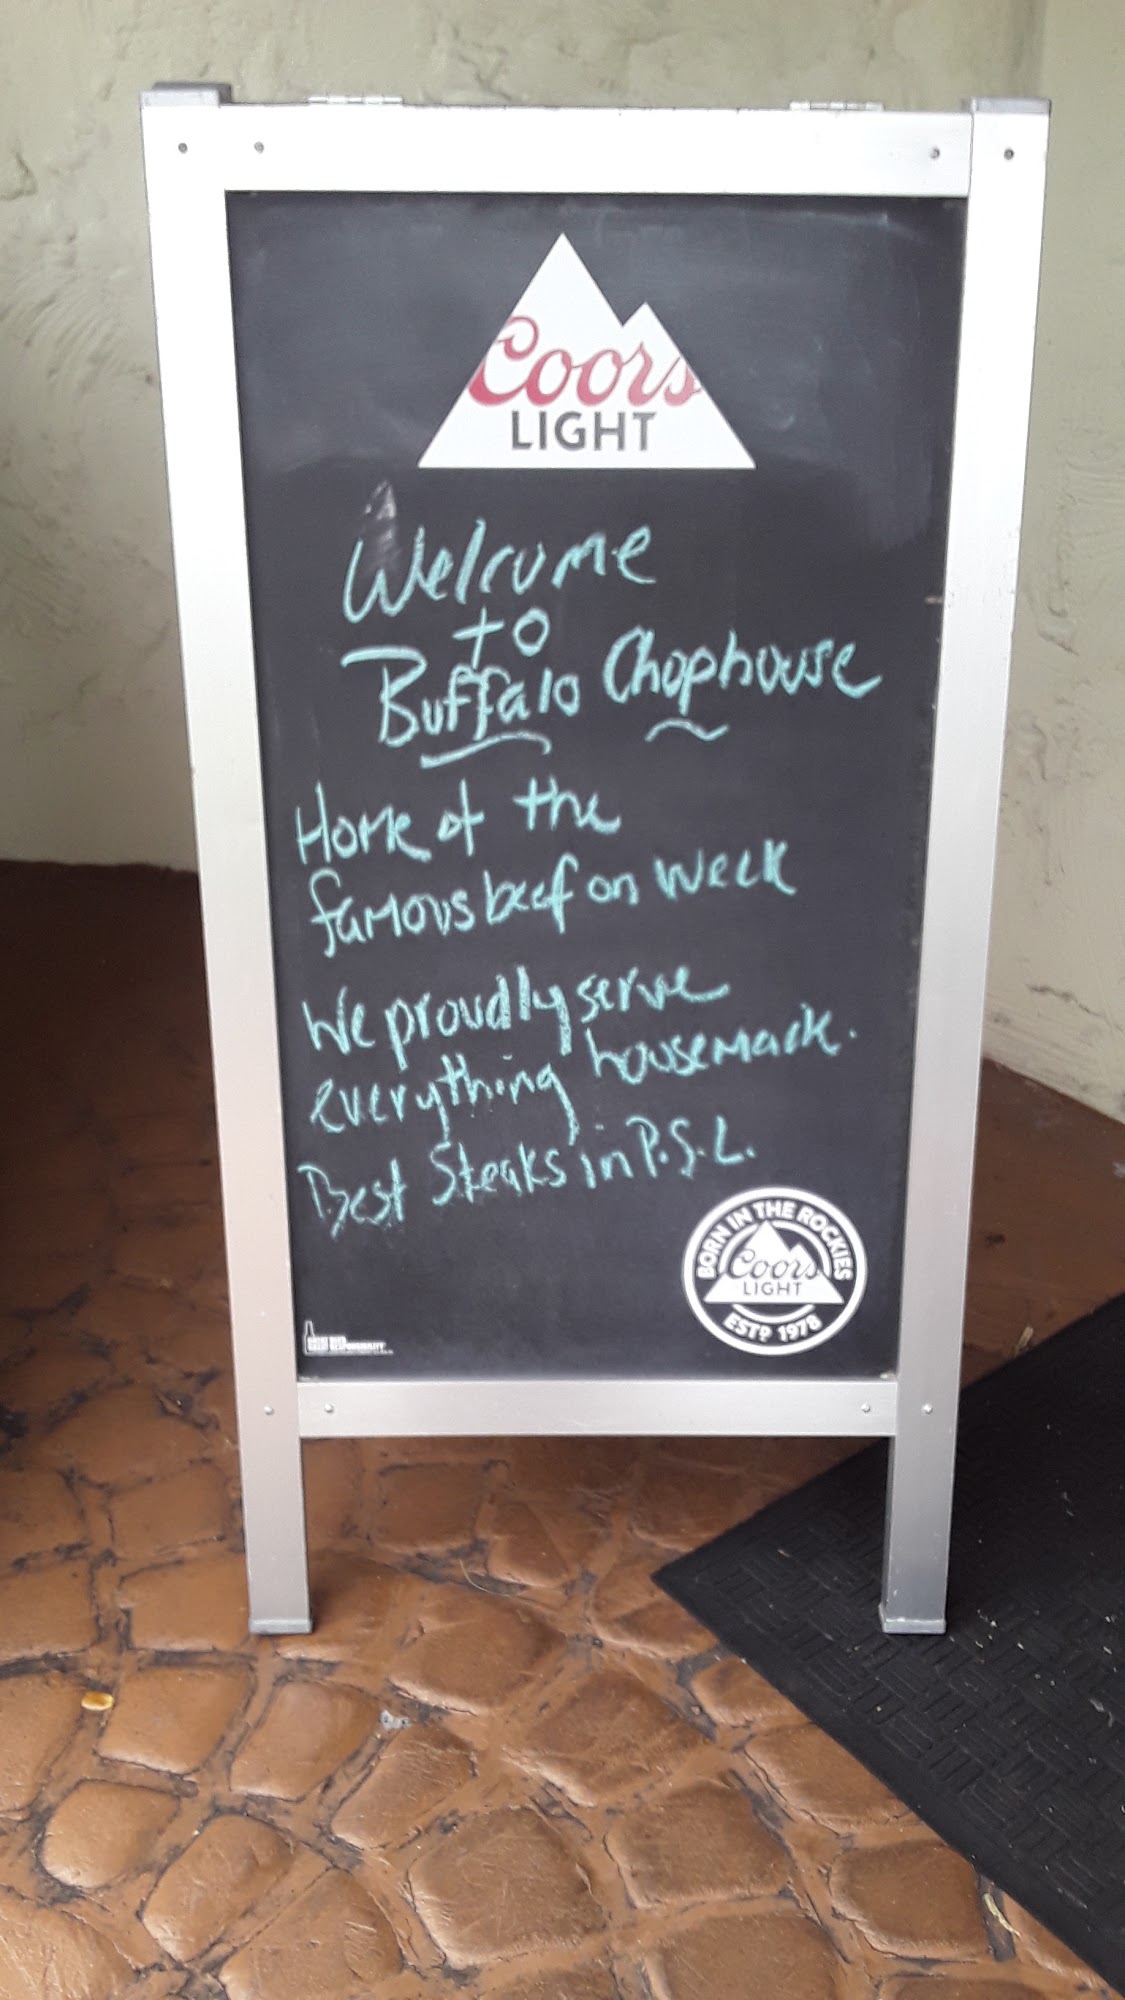 Coors
LIGHT
Welcome
to
Buffalo Chophouse
Home of the
famous beef on weck
We proudly serve
everything housemade.
Best Steaks in P.S.L.
BORN IN THE ROCKIES
Coors
LIGHT
ESTD 1978
GREAT BEER
GREAT RESPONSIBILITY